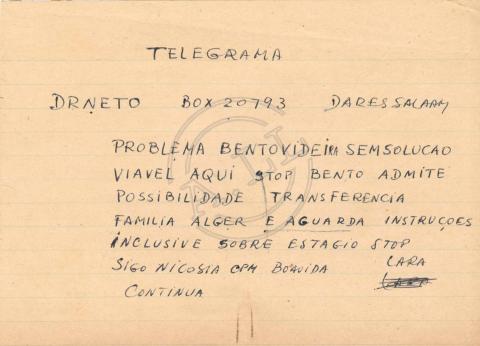 TELEGRAMA
DR NETO BOX 20793 DARESSALAAM
PROBLEMA BENTOVIDEIRA SEMSOLUCAO
VIAVEL AQUI STOP BENTO ADMITE
POSSIBILIDADE TRANSFERENCIA
FAMILIA ALGER E AGUARDA INSTRUÇOES
INCLUSIVE SOBRE ESTAGIO STOP
SIGO NICOSIA CPM BOAVIDA LARA
CONTINUA